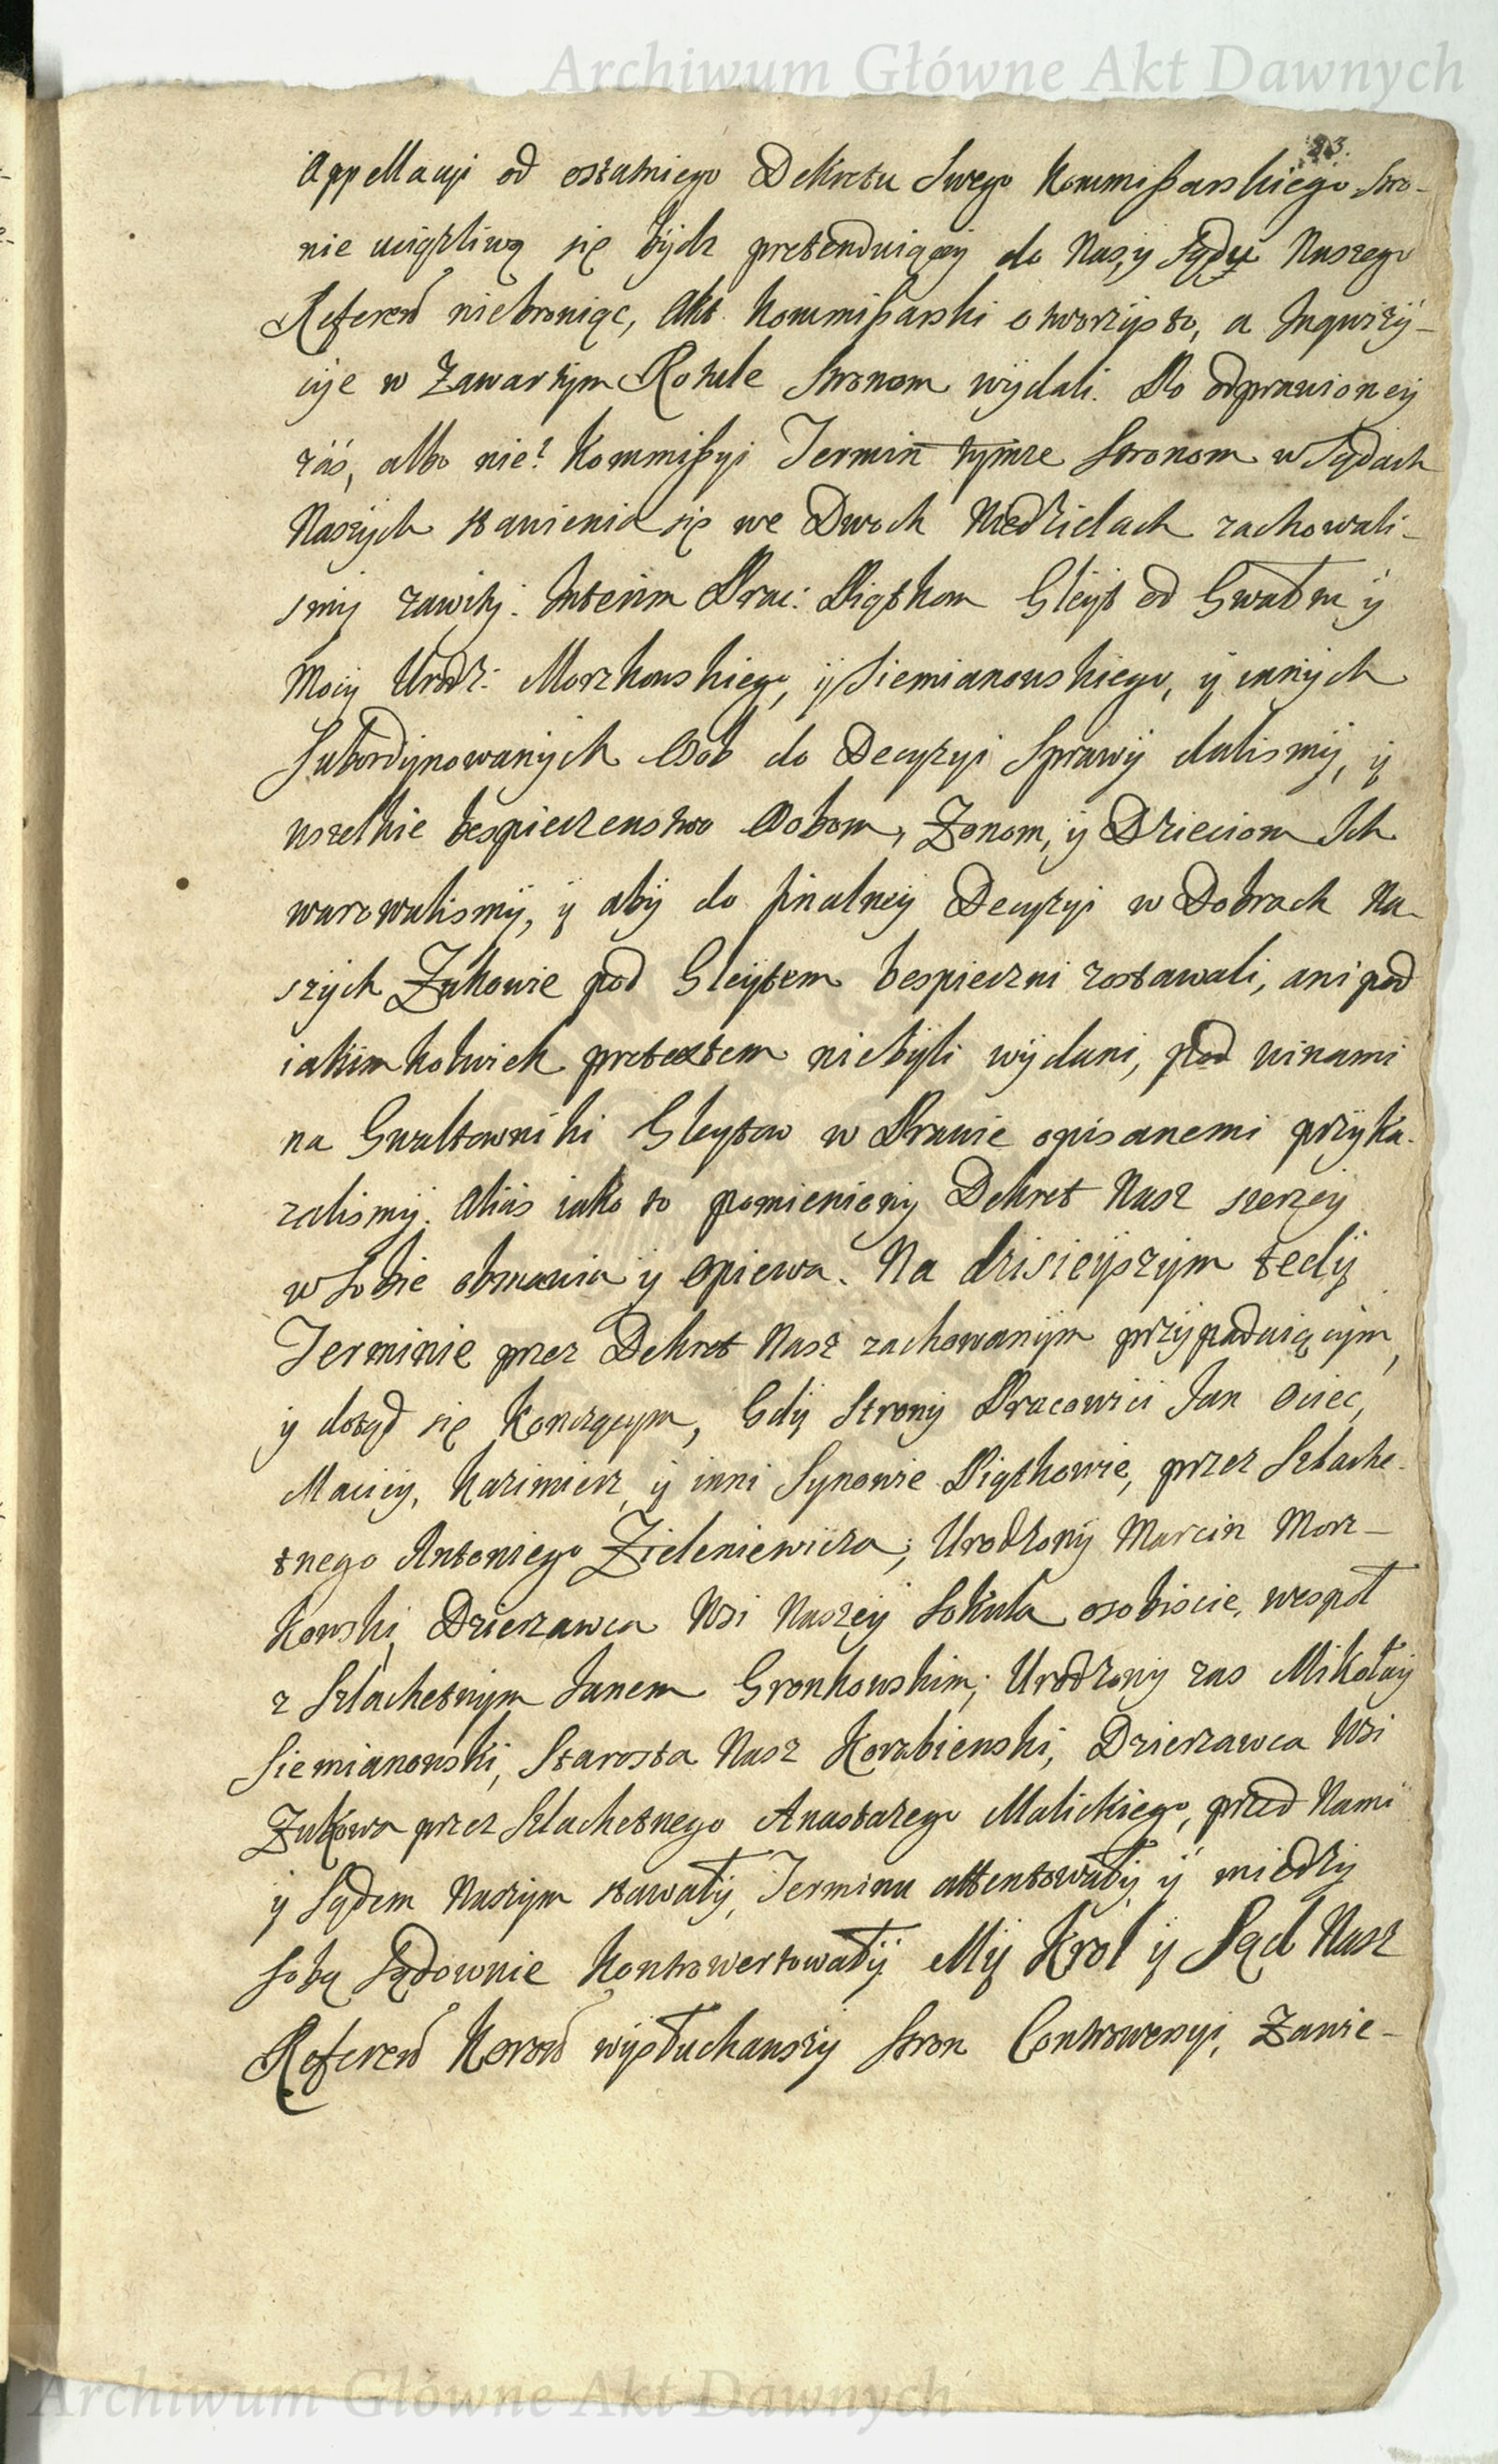 Archiwum Główne Akt Dawnych
23.
Appellacyi od ostatniego Dekretu Swego Kommißarskiego Stro-
nie uciążliwą się bydz pretenduiącey do Nas, y Sądu Naszego
Referen niebroniąc, Akt Kommißarski otworzysto, a Inquizy-
cye w Zawartym Rotule Stronom wydali. Po odprawioney
záś, albo nie? Kommißyi Termin tymże Stronom w Sądach
Naszych stawienia się we Dwoch Niedzielach zachowali-
smy zawity. Interim Prac: Piątkom Gleyt od Gwałtu y
Mocy Urodz: Morzkowskiego, y Siemianowskiego, y innych
Subordynowanych Osob do Decyzyi Sprawy dalismy, y
wszelkie bespieczenstwo Osobom, Zonom, y Dzieciom Ich
warowalismy, y aby do finalney Decyzyi w Dobrach Na-
szych Zukowie pod Gleytem bespieczni zostawali, ani pod
iakimkolwiek pretextem niebyli wydani, pod winami
na Gwałtowniki Gleytow w Prawie opisanemi przyka-
zalismy. Alias iako to pomieniony Dekret Nasz szerzey
w Sobie obmawia y opiewa. Na dzisieyszym tedy
Terminie przez Dekret Nasz zachowanym przypaduiącym,
y dotąd się Konczącym, Gdy Strony Pracowici Jan Ociec,
Maciey, Kazimierz, y inni Synowie Piątkowie, przez Szlache-
tnego Antoniego Zieleniewicza; Urodzony Marcin Morz-
kowski, Dzierzawca Wsi Naszey Sokula osobiscie, wespoł
z Szlachetnym Janem Gronkowskim; Urodzony zas Mikołay
Siemianowski, Starosta Nasz Korabienski, Dzierzawca Wsi
Zukowa przez Szlachetnego Anastazego Malickiego, przed Nami
y Sądem Naszym stawały, Terminu attentowały, y miedzy
sobą Sądownie Kontrowertowały. My Krol y Sąd Nasz
Referen Koron wysłuchawszy Stron Controwersyi, Zawie-
Archiwum Główne Akt Dawnych